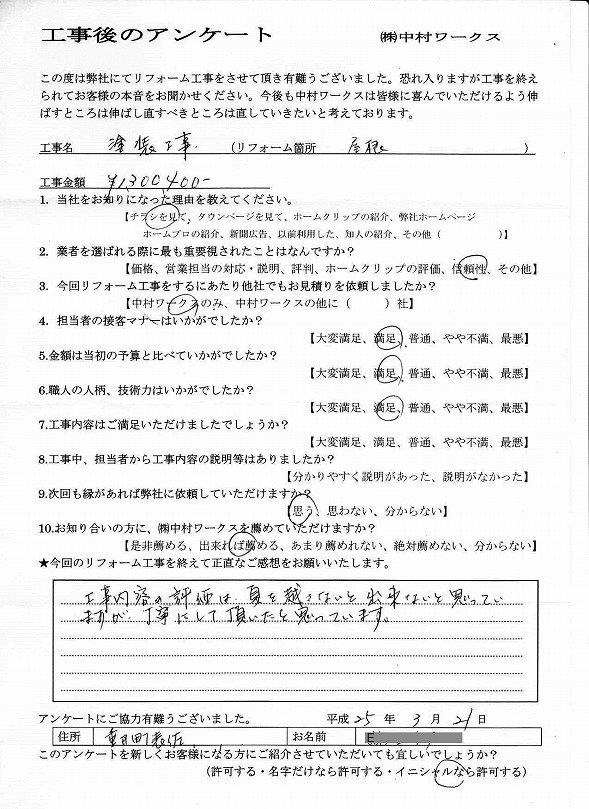 工事後のアンケート ㈱中村ワークス
この度は弊社にてリフォーム工事をさせて頂き有難うございました。恐れ入りますが工事を終え
られてお客様の本音をお聞かせください。今後も中村ワークスは皆様に喜んでいただけるよう伸
ばすところは伸ばし直すべきところは直していきたいと考えております。
工事名 塗装工事 (リフォーム箇所 屋根 )
工事金額 ¥1,300,400-
1. 当社をお知りになった理由を教えてください。
【チラシを見て, タウンページを見て、ホームクリップの紹介、弊社ホームページ
ホームプロの紹介、新聞広告、以前利用した、知人の紹介、その他( )】
2. 業者を選ばれる際に最も重要視されたことはなんですか?
【価格、営業担当の対応・説明、評判、ホームクリップの評価、信頼性、その他】
3. 今回リフォーム工事をするにあたり他社でもお見積りを依頼しましたか?
【中村ワークスのみ、中村ワークスの他に( )社】
4. 担当者の接客マナーはいかがでしたか?
【大変満足、満足、普通、やや不満、最悪】
5.金額は当初の予算と比べていかがでしたか?
【大変満足、満足、普通、やや不満、最悪】
6.職人の人柄、技術力はいかがでしたか?
【大変満足、満足、普通、やや不満、最悪】
7.工事内容はご満足いただけましたでしょうか?
【大変満足、満足、普通、やや不満、最悪】
8.工事中、担当者から工事内容の説明等はありましたか?
【分かりやすく説明があった、説明がなかった】
9.次回も縁があれば弊社に依頼していただけますか?
【思う、思わない、分からない】
10.お知り合いの方に、㈱中村ワークスを薦めていただけますか?
【是非薦める、出来れば薦める、あまり薦めれない、絶対薦めない、分からない】
★今回のリフォーム工事を終えて正直なご感想をお願いいたします。
工事内容の評価は、夏を越さないと出来ないと思ってい
ますが、丁寧にして頂いたと思っています。
アンケートにご協力有難うございました。 平成25年3月21日
住所 お名前 E
このアンケートを新しくお客様になる方にご紹介させていただいても宜しいでしょうか?
(許可する・名字だけなら許可する・イニシャルなら許可する)